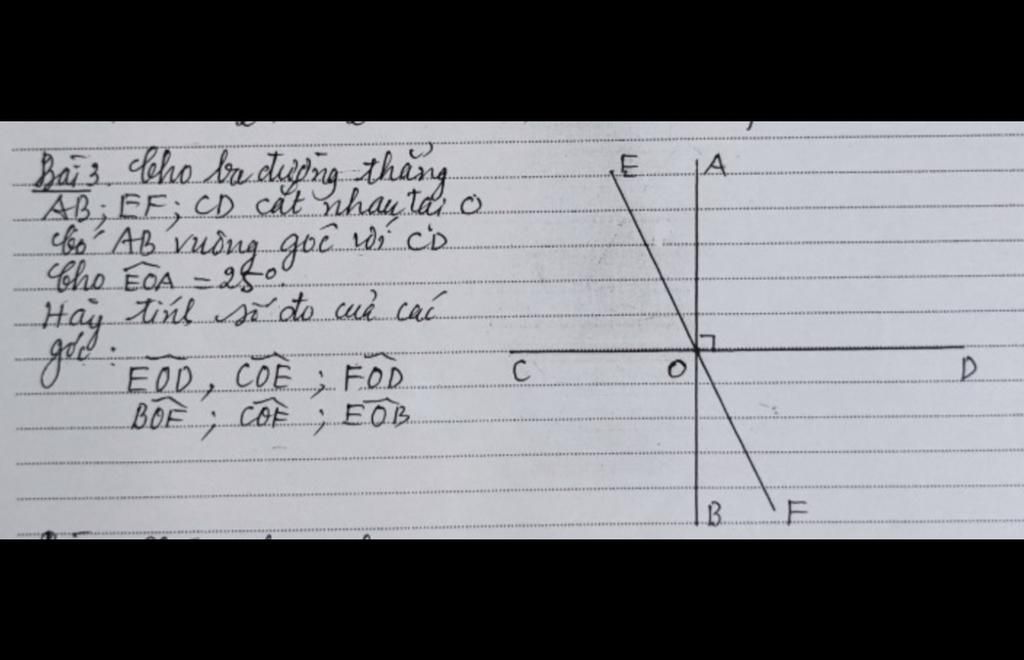 Bài 3. Cho ba đường thẳng
AB; EF; CD cắt nhau tại O
Có AB vuông góc với CD
Cho EOA = 25°.
Hãy tính số đo của các
góc:
EOD, COE; FOD
BOF; COF; EOB
E
A
C
O
D
B
F